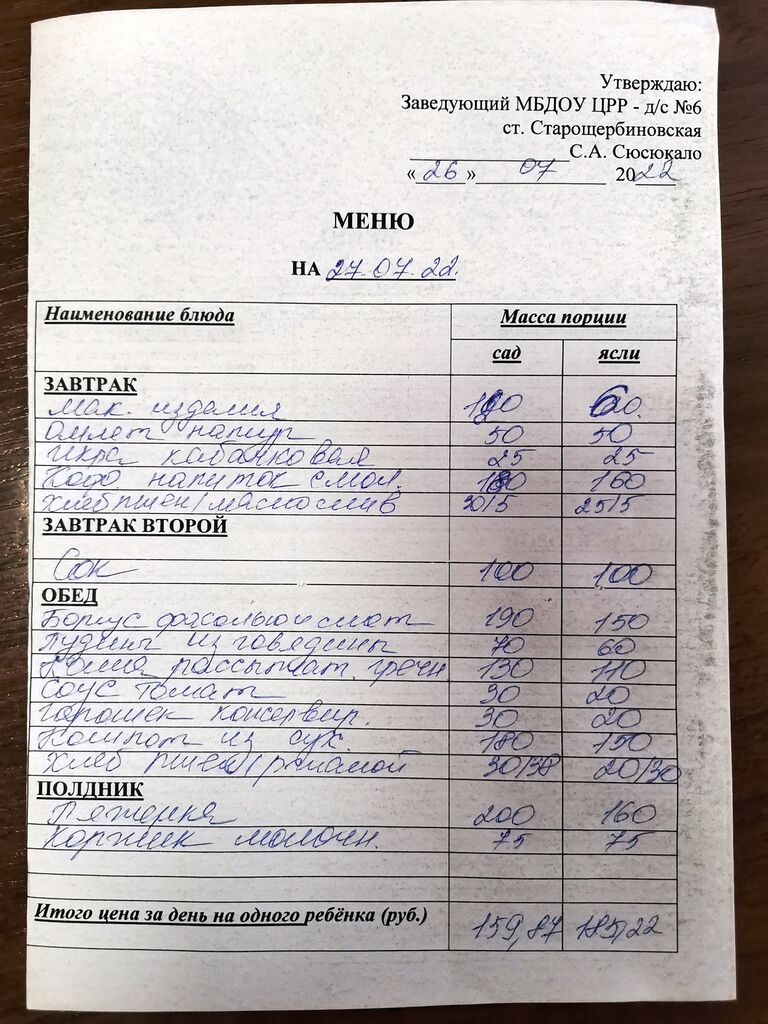 Утверждаю:
Заведующий МБДОУ ЦРР - д/с №6
ст. Старощербиновская
С.А. Сюсюкало
« 26 » 07 2022
МЕНЮ
НА 27.07.22.
Наименование блюда Масса порции
сад ясли
ЗАВТРАК
Мак. изделия
Омлет натур 50 50
Икра кабачковая 25 25
Кофе напиток с мол. 180 160
Хлеб пшен/масло слив 30/5 25/5
ЗАВТРАК ВТОРОЙ
Сок 100 100
ОБЕД
Борщ с фасолью и смет 190 150
Пудинг из говядины 70 60
Каша рассыпчат. гречн 130 110
Соус томат 30 20
Горошек консервир. 30 20
Компот из сух. 180 150
Хлеб пшен/ржаной 30/38 20/30
ПОЛДНИК
Ряженка 200 160
Коржик молочн. 75 75
Итого цена за день на одного ребёнка (руб.) 159,87 185,22